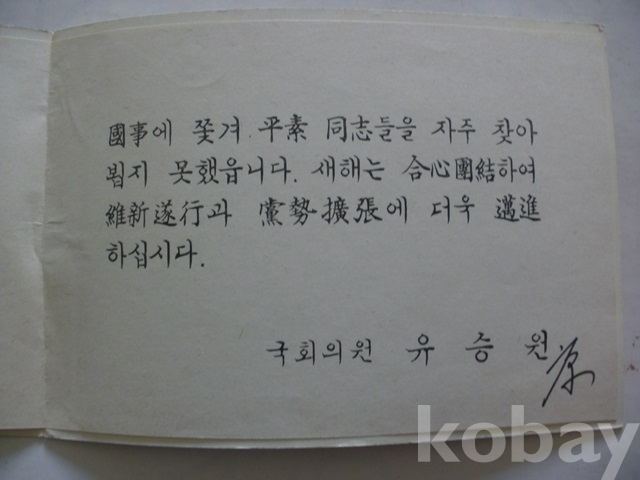 國事에 쫓겨 平素 同志들을 자주 찾아
뵙지 못했읍니다. 새해는 合心團結하여
維新遂行과 黨勢擴張에 더욱 邁進
하십시다.
국회의원 유 승 원
kobay